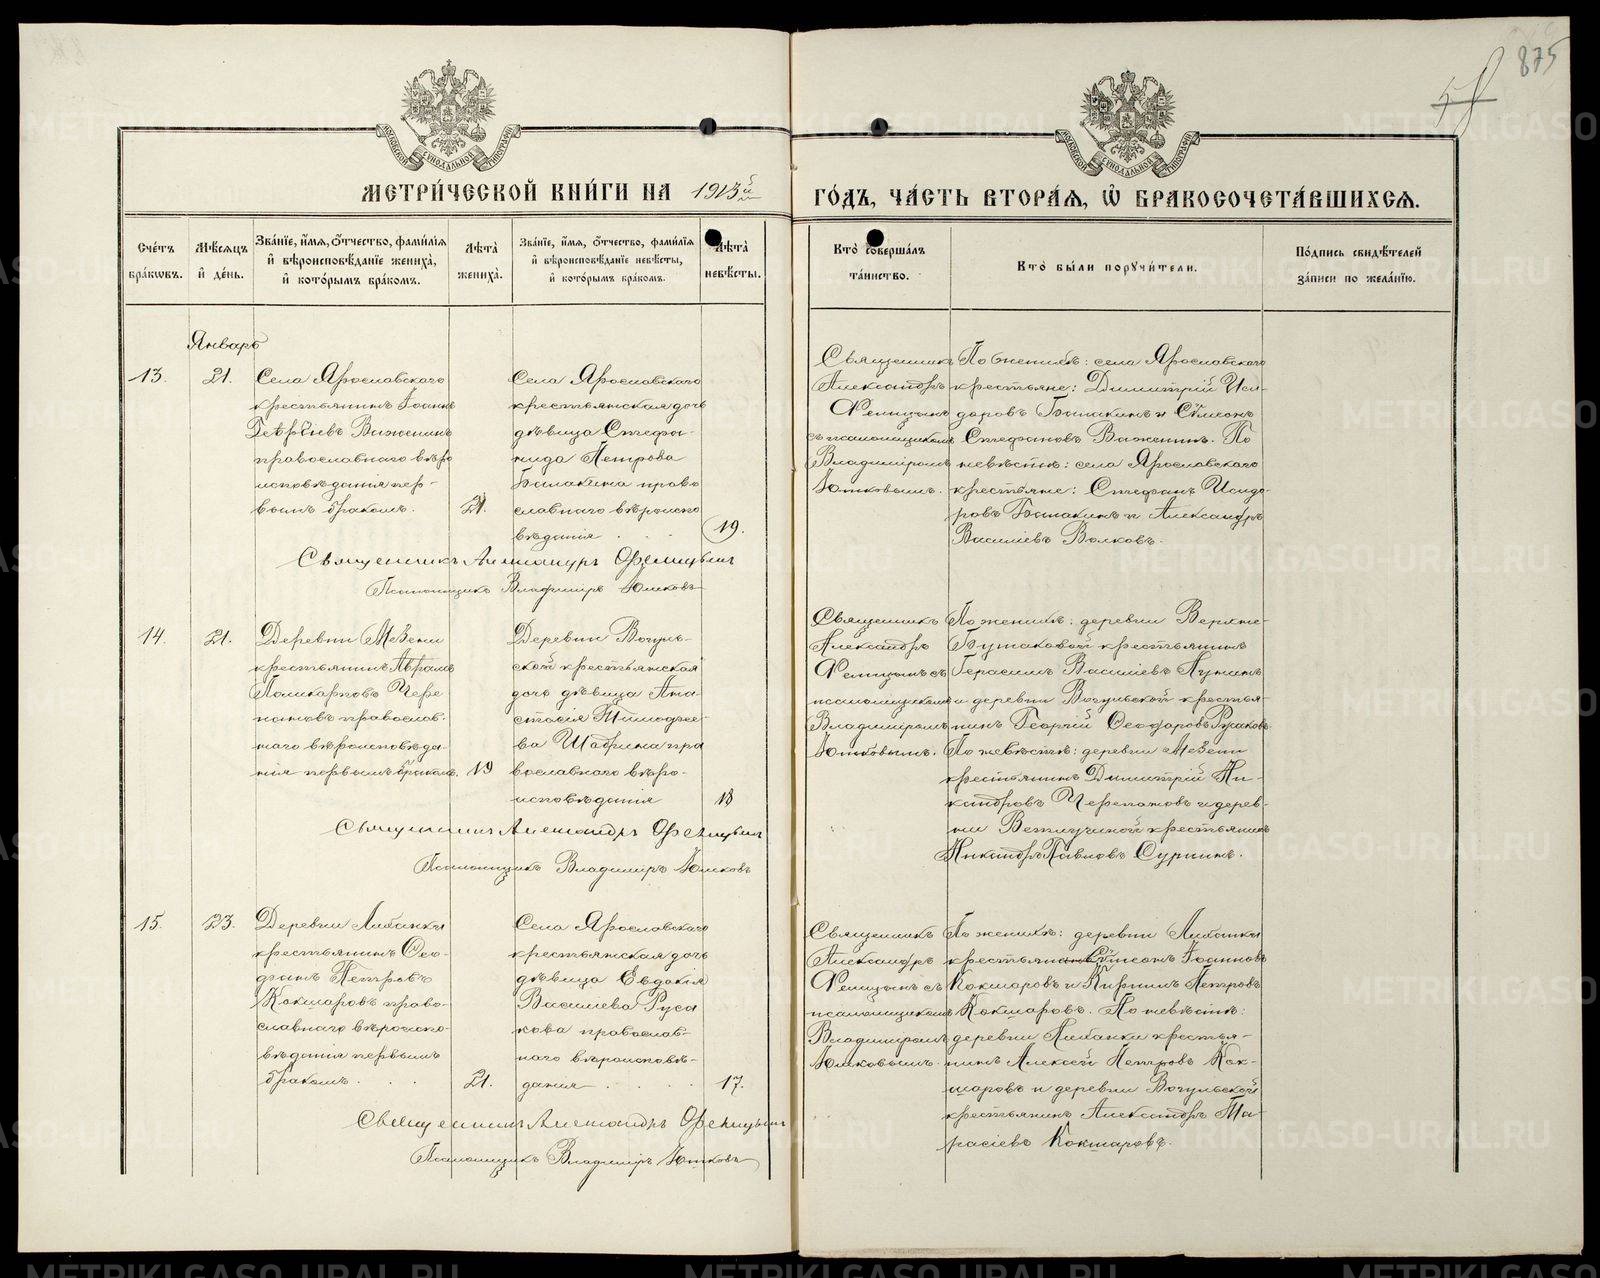 875
МЕТРИ́ЧЕСКОЙ КНИ́ГИ НА 1913й
ГО́ДЪ, ЧА́СТЬ ВТОРА́Я, Ѽ БРАКОСОЧЕТА́ВШИХСЯ.
Сче́тъ бра́ковъ.
Мѣ́сяцъ и҆ де́нь.
Зва́нїе, и҆́мя, ѻ҆́тчество, фами́лїя и҆ вѣроисповѣ́данїе жениха̀, и҆ кото́рымъ бра́комъ.
Лѣ́та жениха̀.
Зва́нїе, и҆́мя, ѻ҆́тчество, фами́лїя и҆ вѣроисповѣ́данїе невѣ́сты, и҆ кото́рымъ бра́комъ.
Лѣ́та невѣ́сты.
Кто̀ соверша́лъ та́инство.
Кто̀ бы́ли порꙋчи́тели.
По́дпись свидѣ́телей за́писи по жела́нїю.
Январь
13.
21.
Села Ярославскаго
крестьянинъ Іоаннъ
Георгіевъ Важенинъ
православнаго вѣро
исповѣданія пер-
вымъ бракомъ.
21.
Села Ярославскаго
крестьянская дочь
дѣвица Стефа-
нида Петрова
Балакина право
славнаго вѣроиспо
вѣданія . .
19.
Священникъ
Александръ
Фелицынъ
съ псаломщикомъ
Владиміромъ
Юшковымъ.
По женихѣ: села Ярославскаго
крестьяне: Димитрій Иси-
доровъ Балакинъ и Сѵмеонъ
Стефановъ Важенинъ. По
невѣстѣ: села Ярославскаго
крестьяне: Стефанъ Исидо-
ровъ Балакинъ и Александръ
Василіевъ Волковъ.
Священникъ Александръ Фелицынъ
Псаломщикъ Владиміръ Юшковъ
14.
21.
Деревни Мезени
крестьянинъ Аврамъ
Поликарповъ Чере
пановъ православ-
наго вѣроисповѣда-
нія первымъ бракомъ.
19
Деревни Вогуль-
ской крестьянская
дочь дѣвица Ана-
стасія Тимоѳее-
ва Шабрина пра
вославнаго вѣро-
исповѣданія
18
Священникъ
Александръ
Фелицынъ съ
псаломщикомъ
Владиміромъ
Юшковымъ.
По женихѣ: деревни Верхне-
Бугаковой крестьянинъ
Герасимъ Василіевъ Лукинъ
и деревни Вогульской крестья-
нинъ Георгій Ѳеодоровъ Русаковъ
По невѣстѣ: деревни Мезени
крестьянинъ Димитрій Ни-
кандровъ Черепановъ и дерев-
ни Ветлугиной крестьянинъ
Никандръ Павловъ Суринъ.
Священникъ Александръ Фелицынъ
Псаломщикъ Владиміръ Юшковъ
15.
23.
Деревни Либанки
крестьянинъ Ѳео-
фанъ Петровъ
Кокшаровъ право-
славнаго вѣроиспо-
вѣданія первымъ
бракомъ. . .
21.
Села Ярославскаго
крестьянская дочь
дѣвица Евдокія
Василіева Руса
кова православ-
наго вѣроисповѣ-
данія . . .
17.
Священникъ
Александръ
Фелицынъ съ
псаломщикомъ
Владиміромъ
Юшковымъ.
По женихѣ: деревни Либанки
крестьяне Сѵмеонъ Іоанновъ
Кокшаровъ и Кириллъ Петровъ
Кокшаровъ. По невѣстѣ:
деревни Либанки крестья-
нинъ Алексѣй Петровъ Кок-
шаровъ и деревни Вогульской
крестьянинъ Александръ Та-
расіевъ Кокшаровъ.
Священникъ Александръ Фелицынъ
Псаломщикъ Владиміръ Юшковъ
METRIKI.GASO-URAL.RU